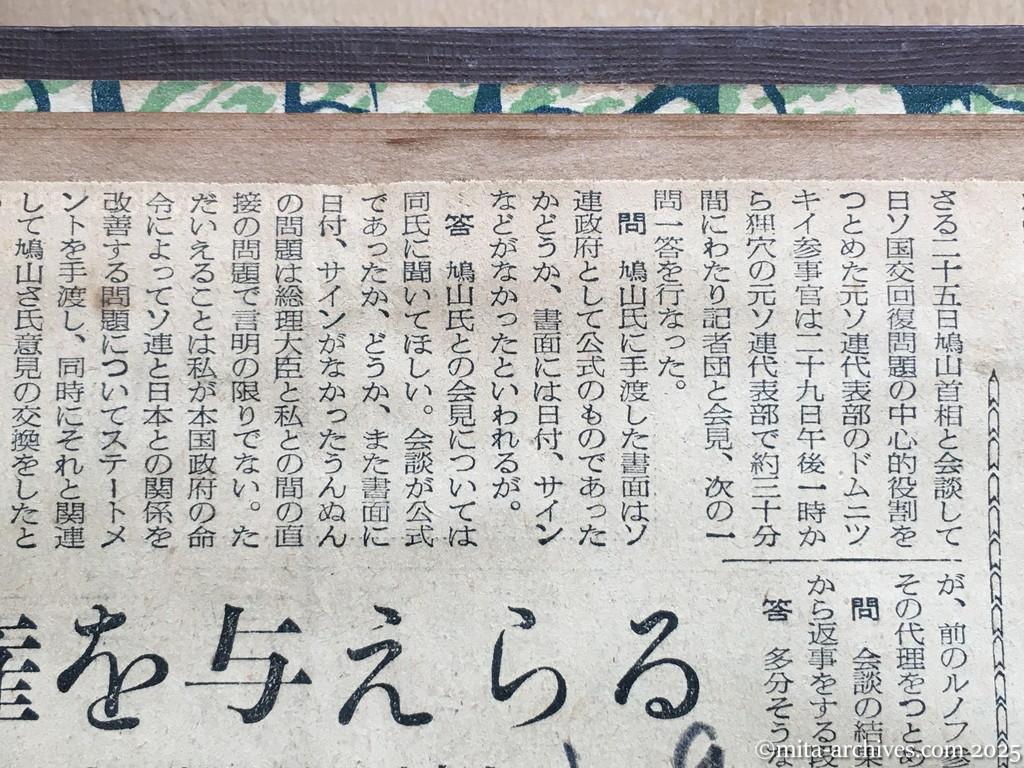 さる二十五日鳩山首相と会談して
日ソ国交回復問題の中心的役割を
つとめた元ソ連代表部のドムニツ
キイ参事官は二十九日午後一時か
ら狸穴の元ソ連代表部で約二十分
間にわたり記者団と会見、次の一
問一答を行なった。
問 鳩山氏に手渡した書面はソ
連政府として公式のものであった
かどうか、書面には日付、サイン
などがなかったといわれるが。
答 鳩山氏との会見については
同氏に聞いてほしい。会談が公式
であったか、どうか、また書面に
日付、サインがなかったうんぬん
の問題は総理大臣と私との間の直
接の問題で言明の限りでない。た
だいえることは私が本国政府の命
令によってソ連と日本との関係を
改善する問題についてステートメ
ントを手渡し、同時にそれと関連
して鳩山ざ氏意見の交換をしたと
が、前のルノフ参
その代理をつとめ
問 会談の結果
から返事をする段
答 多分そうな
権を与えらる
©mita-archives.com 2025